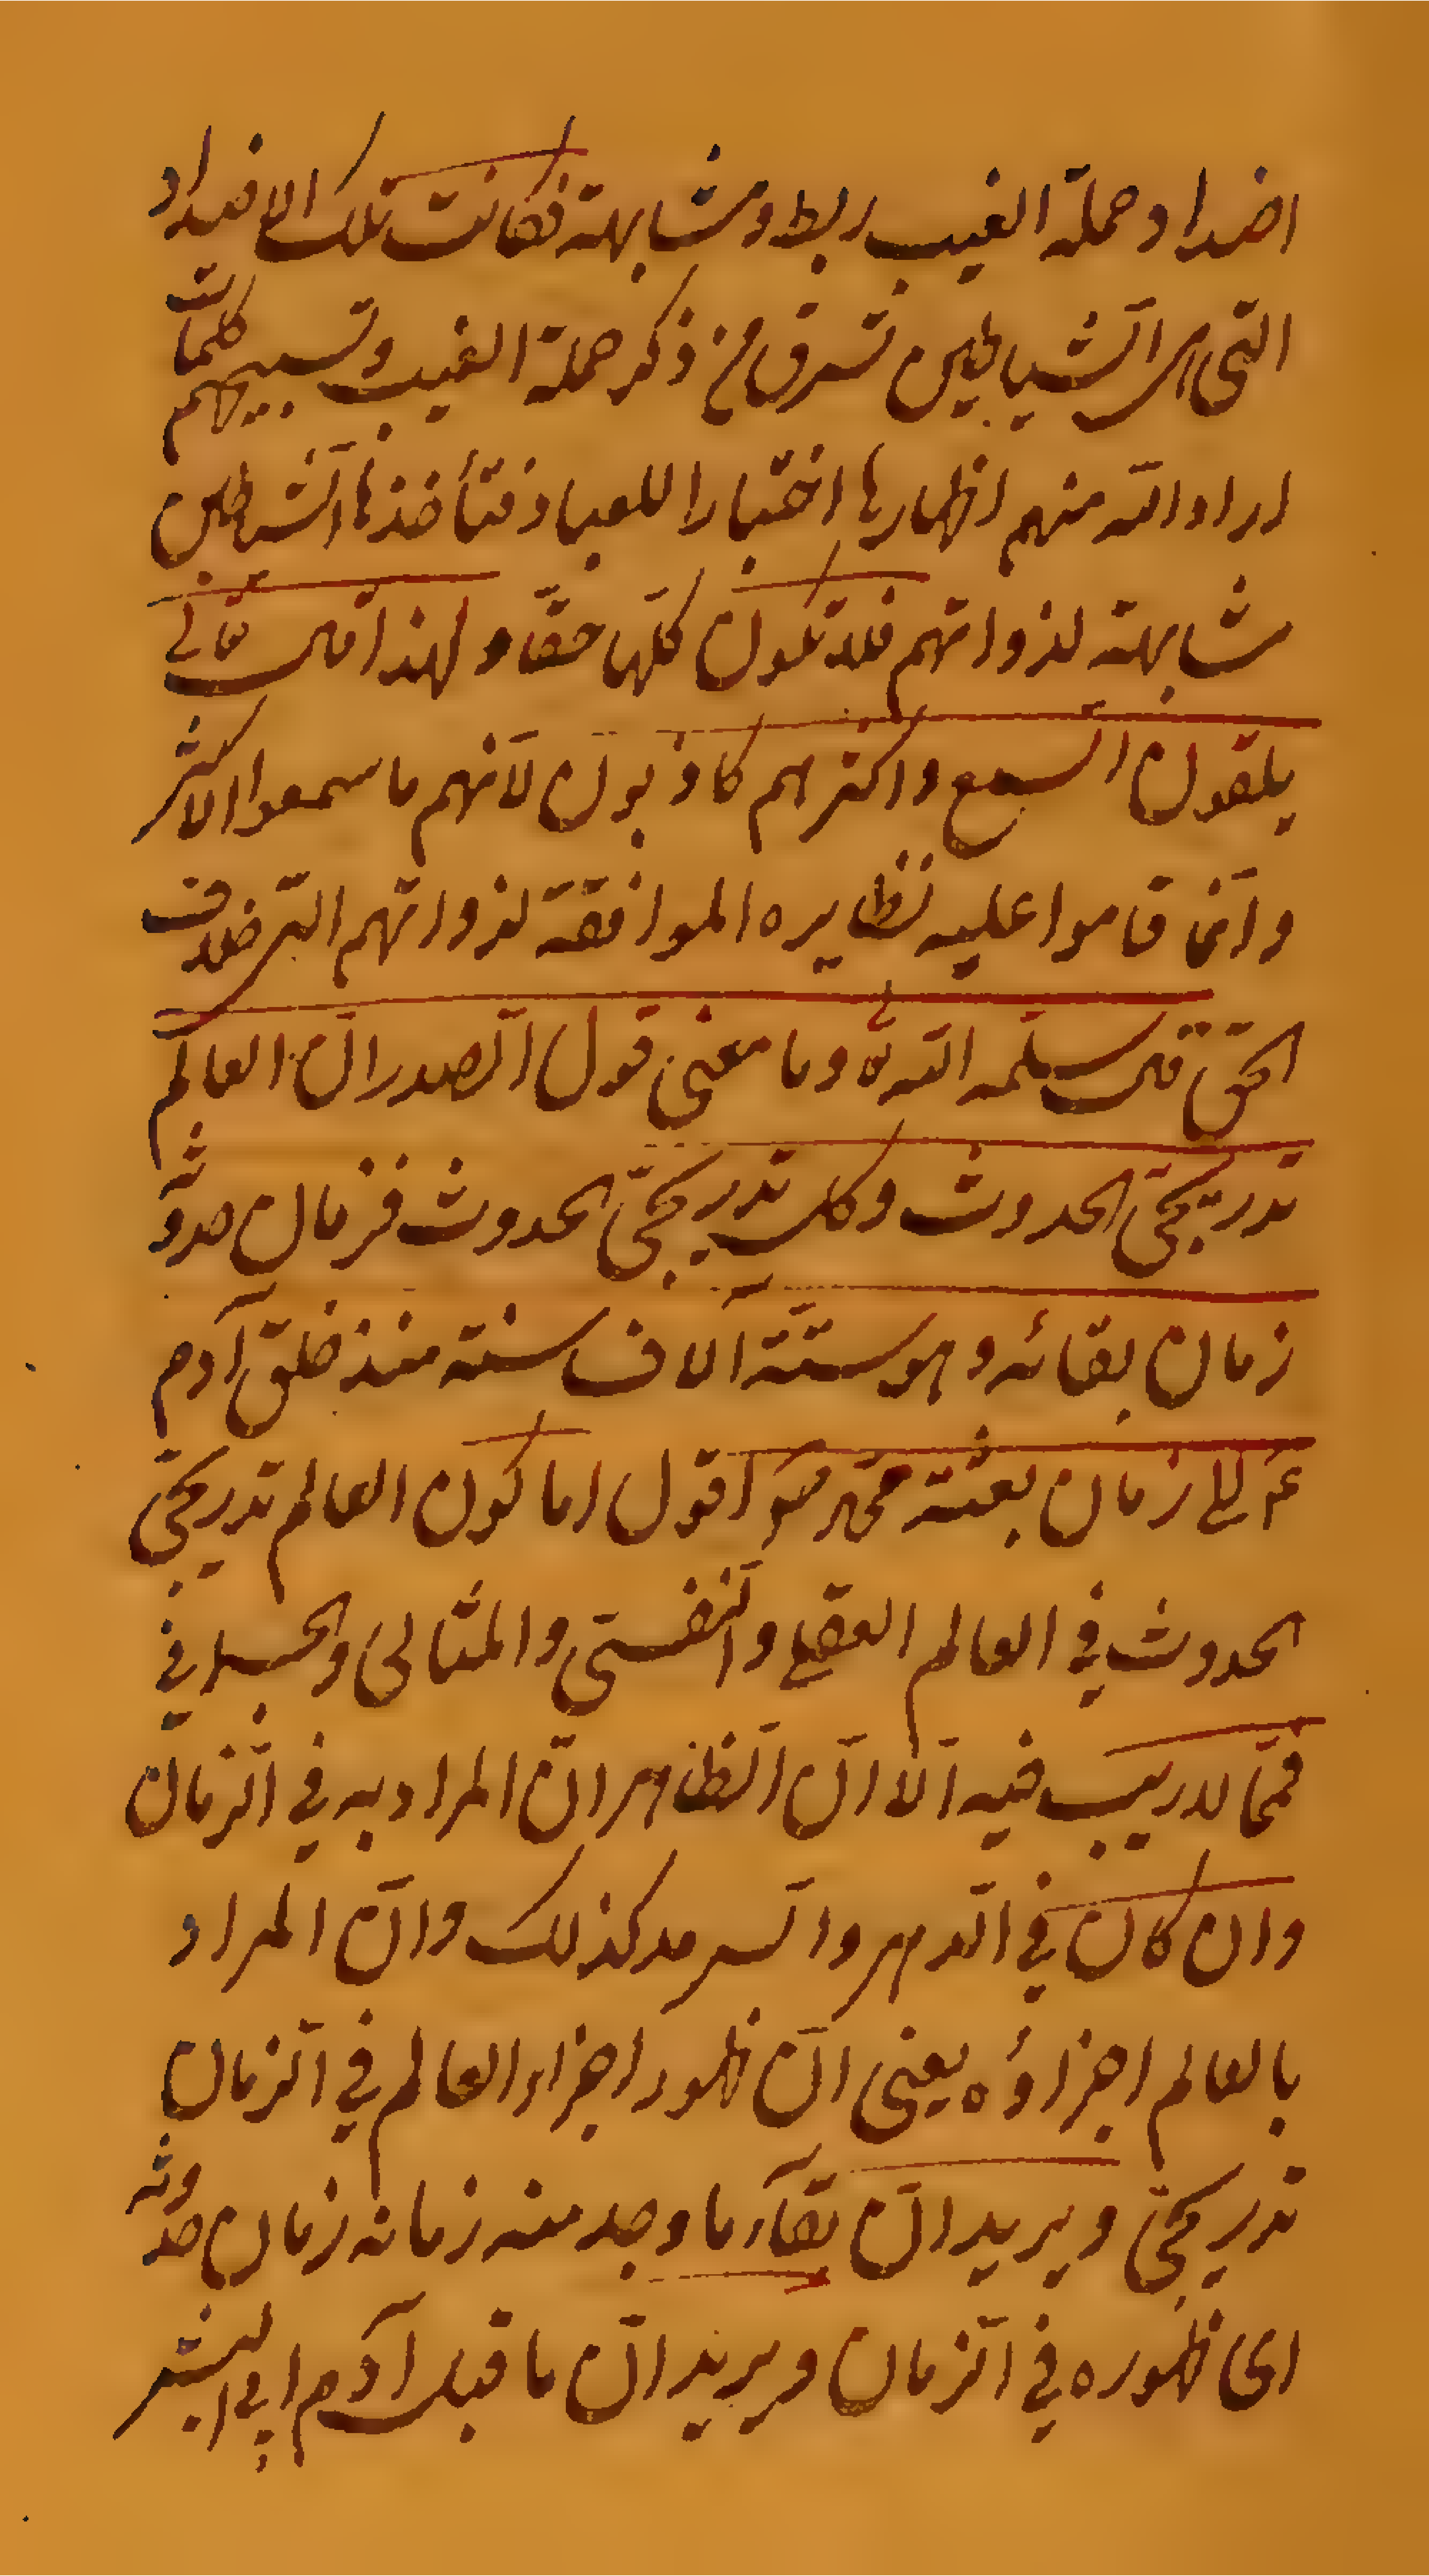 اضداد وحملة الغيب ربط ومشابهة فكانت تلك الاضداد
التي هي الشياطين تسترق من ذكر حملة الغيب وتسبيحهم كلمات
اراد الله منهم اظهارها اختبارا للعباد فتأخذها الشياطين
مشابهة لذواتهم فلا تكون كلّها حقّا ولهذا قال تعالى
يلقون السمع واكثرهم كاذبون لأنهم ما سمعوا الاكثر
وانّما قاموا عليه نظايره الموافقة لذواتهم التي خلاف
الحقّ قال سلّمه الله تع وما معنى قول الصدر انّ العالم
تدريجيّ الحدوث وكل تدريجيّ الحدوث فزمان حدوثه
زمان بقائه وهو ستّة آلاف سنة منذ خلق آدم
ع الى زمان بعثة محمّد ص اقول اما كون العالم تدريجيّ
الحدوث في العالم العقلي والنفسيّ والمثالي والجسماني
فمّما لا ريب فيه الّا انّ الظاهر انّ المراد به في الزمان
وان كان في الدهر والسرمد كذلك وانّ المراد
بالعالم اجزاؤه يعني انّ ظهور اجزاء العالم في الزمان
تدريجيّ ويريد انّ بقآء ما وجد منه زمانه زمان حدوثه
اى ظهوره في الزمان ويريد انّ ما قبل آدم ابي البشر